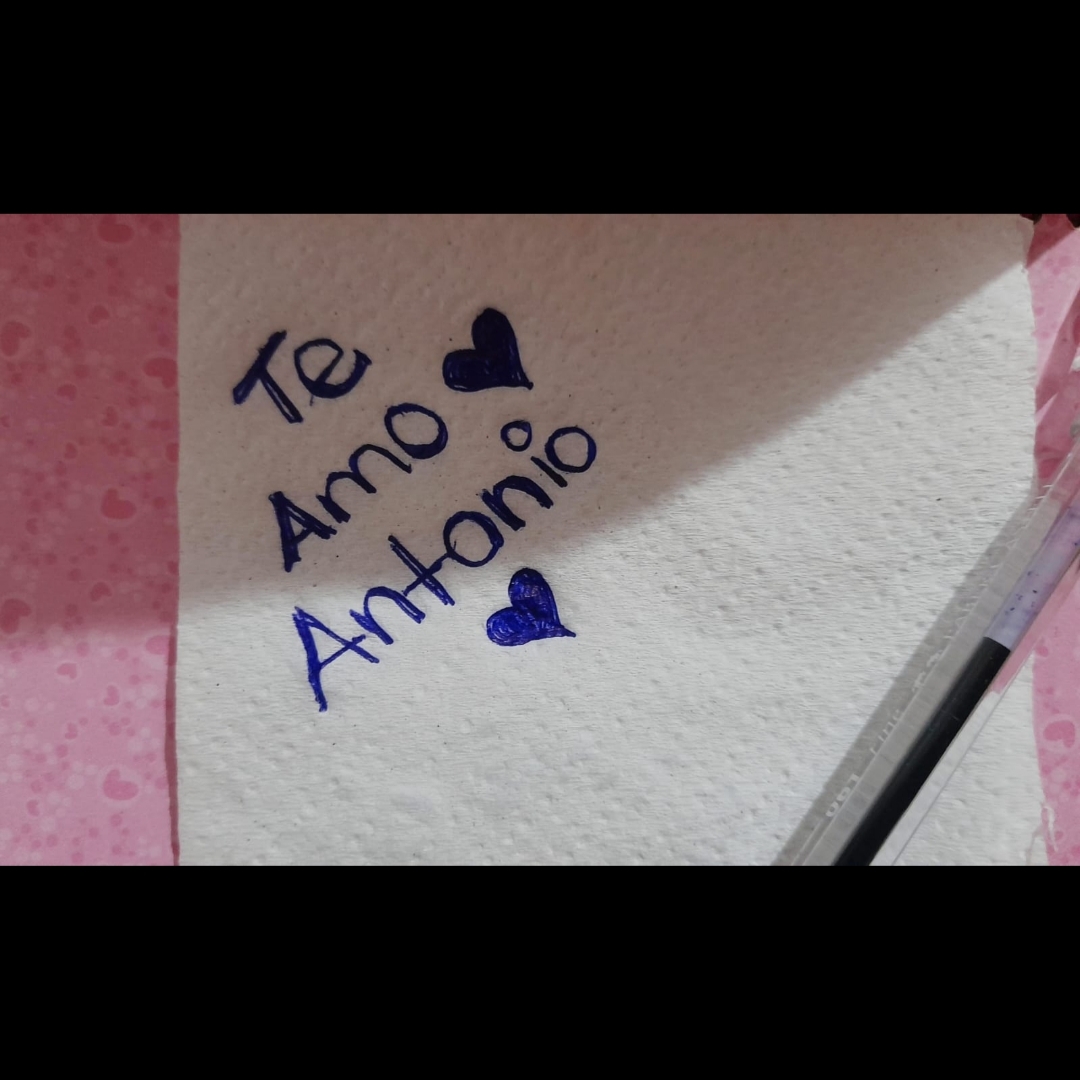 Te
Amo
Antonio